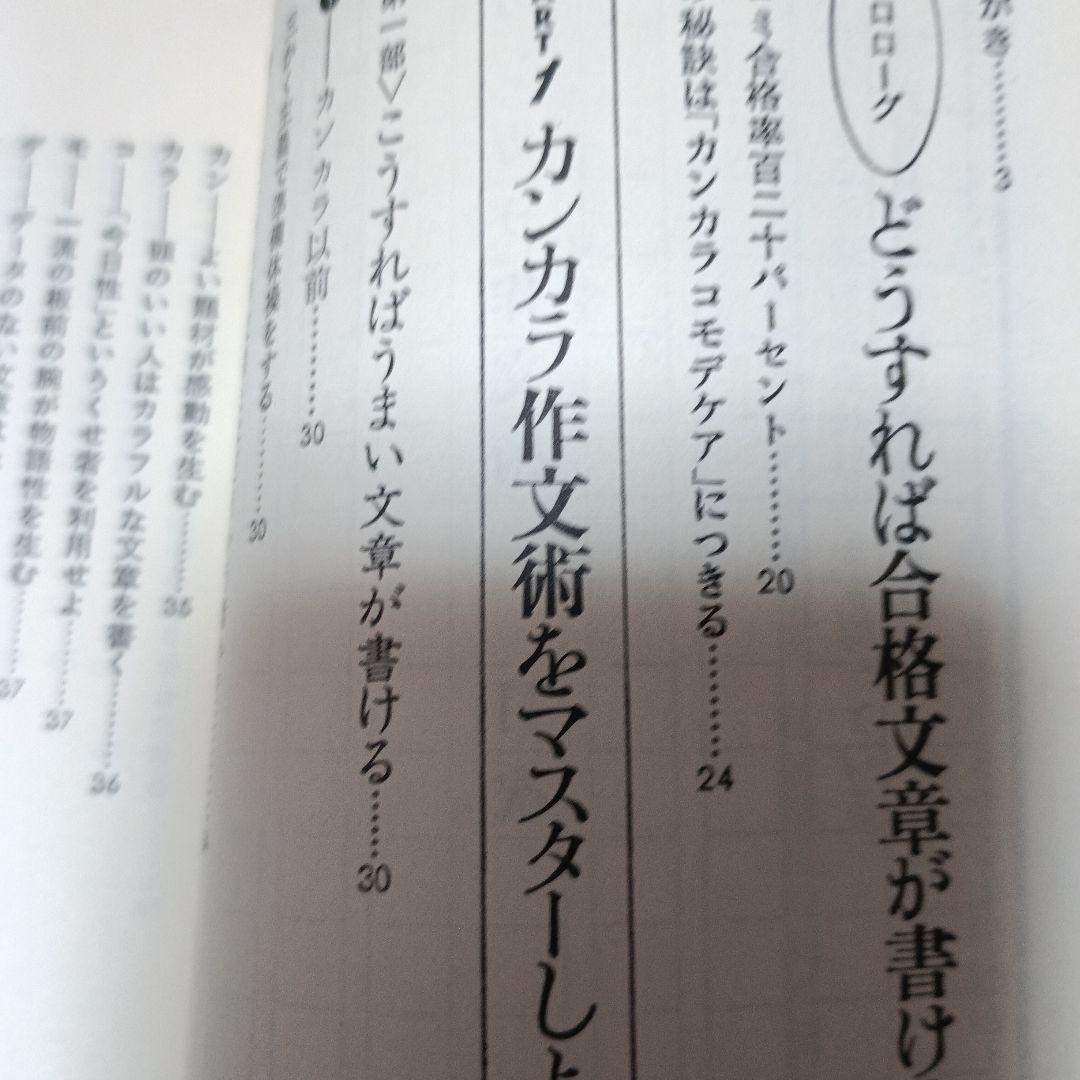 がき…………3
ロローグ
どうすれば合格文章が書け
ミ合格率百二十パーセント…………20
秘訣は『カンカラコモデケア』につきる…………24
ART 1 カンカラ作文術をマスターし
第一部〉こうすればうまい文章が書ける……30
カンカラ以前…………30
準備体操をする…………30
カン——よい題材が感動を生む…………35
カラ——頭のいい人はカラフルな文章を書く…………36
コ——「今日性」というくせ者を利用せよ…………37
モ——一流の板前の腕が物語性を生む…………37
デ——データのない文章は